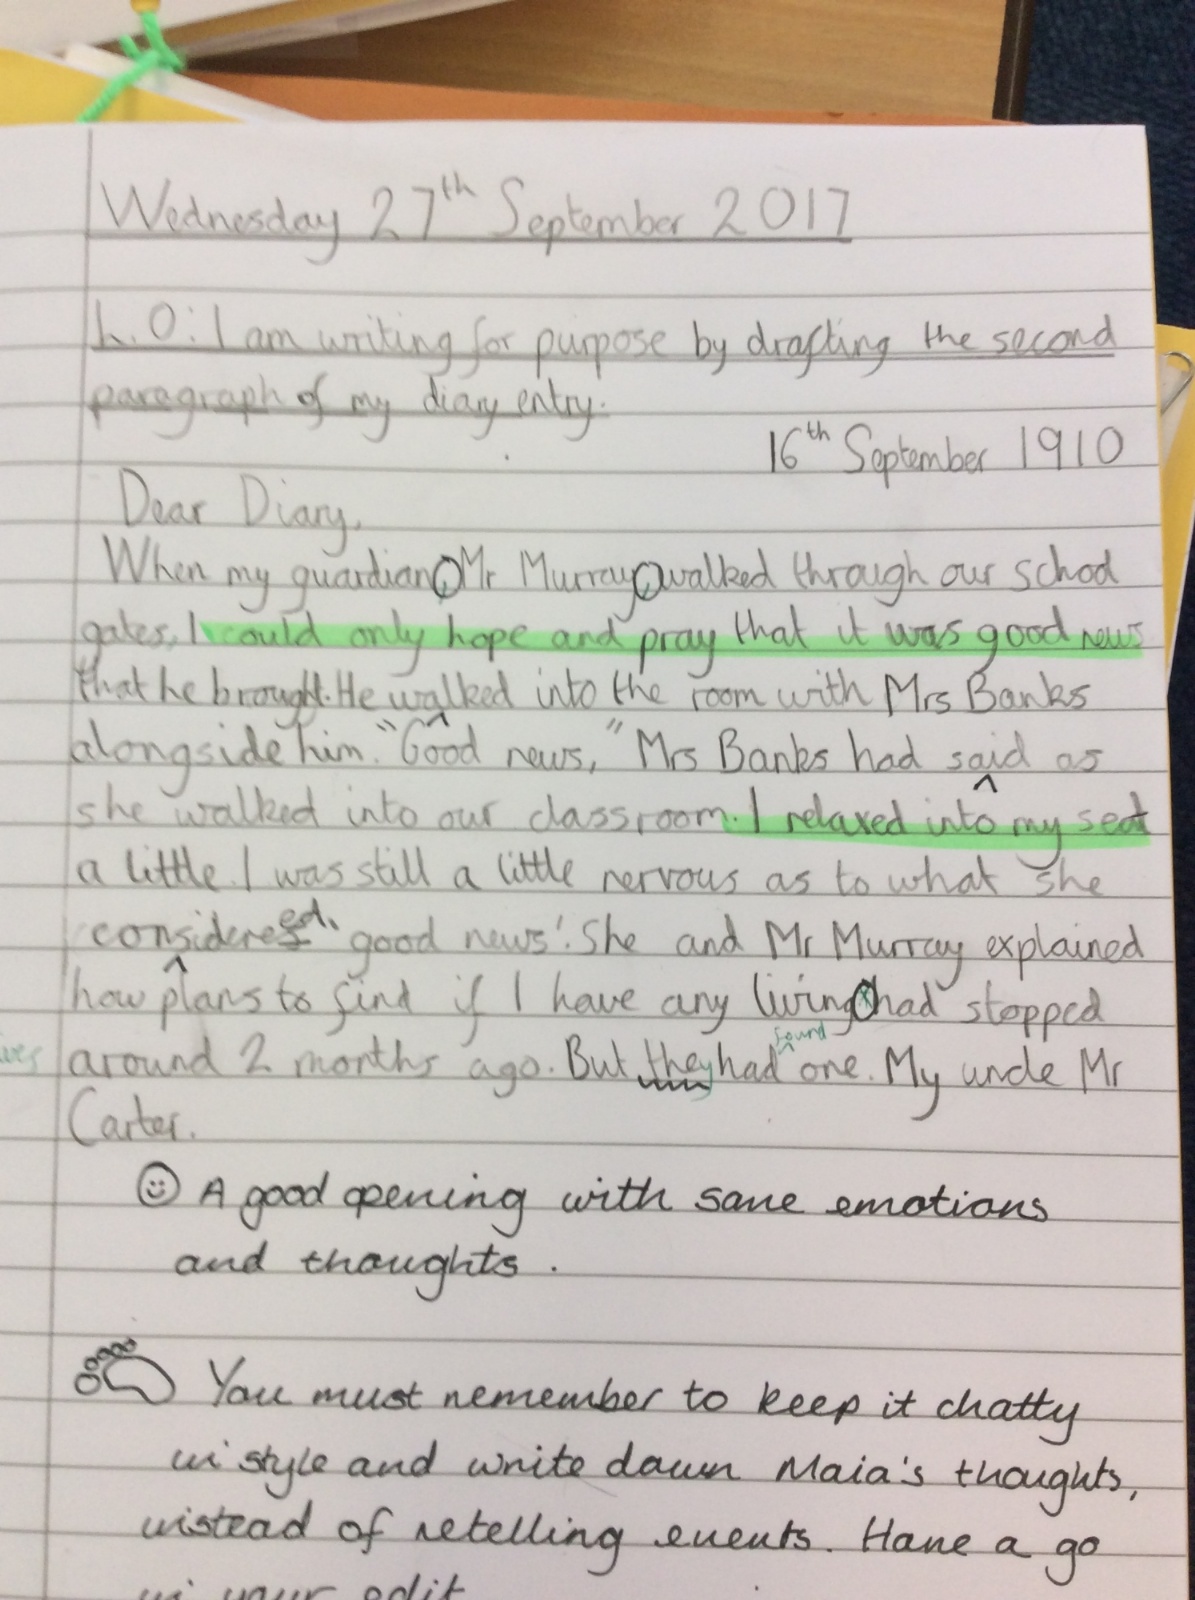 Wednesday 27th September 2017
L.O: I am writing for purpose by drafting the second
paragraph of my diary entry.
16th September 1910
Dear Diary,
When my guardian, Mr Murray, walked through our school
gates, I could only hope and pray that it was good news
that he brought. He walked into the room with Mrs Banks
alongside him. "Good news," Mrs Banks had said as
she walked into our classroom. I relaxed into my seat
a little. I was still a little nervous as to what she
considered 'good news'. She and Mr Murray explained
how plans to find if I have any living * had stopped
found
around 2 months ago. But they had one. My uncle Mr
Carter.
A good opening with some emotions
and thoughts.
You must remember to keep it chatty
in style and write down Maia's thoughts,
instead of retelling events. Have a go
in your edit